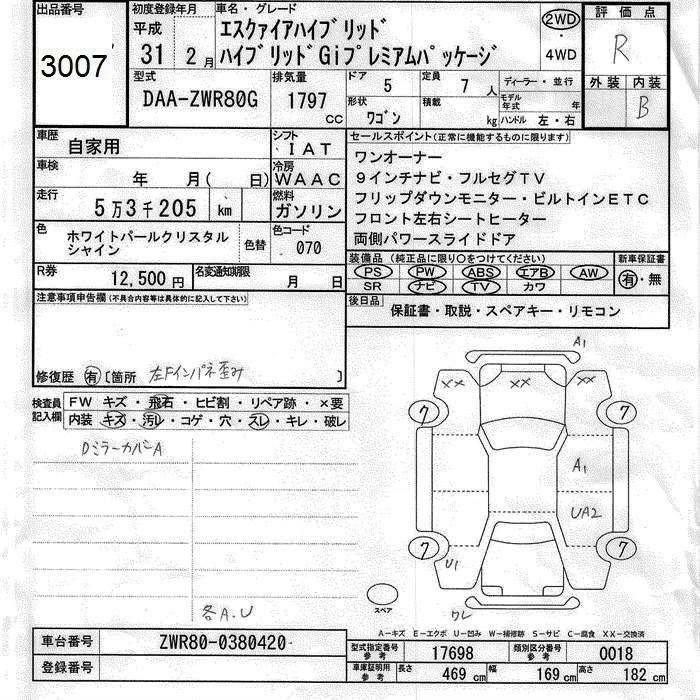 出品番号
3007
初度登録年月
平成
31 2月
車名・グレード
エスクァイアハイブリッド
ハイブリッドGiプレミアムパッケージ
2WD
・
4WD
評価点
R
外装 内装
B
型式
DAA-ZWR80G
排気量
1797
cc
ドア
5
定員
7 人
ディーラー・並行
形状
ワゴン
積載
kg
モデル年式 年
ハンドル 左・右
車歴
自家用
シフト
IAT
車検
年 月( 日)
冷房
WAAC
走行
5万3千205 km
燃料
ガソリン
色
ホワイトパールクリスタル
シャイン
色替
色コード
070
R券
12,500円
名変通知期限
月 日
セールスポイント(正常に機能するものに限ります)
ワンオーナー
9インチナビ・フルセグTV
フリップダウンモニター・ビルトインETC
フロント左右シートヒーター
両側パワースライドドア
装備品(純正品に限り〇をつけてください)
新車保証書
PS PW ABS エアB AW
SR ナビ TV カワ
有・無
後日品
保証書・取説・スペアキー・リモコン
注意事項申告欄(不具合内容等は具体的に記入して下さい)
修復歴 有 〔箇所 左Fインパネ歪み 〕
検査員
記入欄
FW キズ・飛石・ヒビ割・リペア跡・×要
内装 キズ・汚レ・コゲ・穴・スレ・キレ・破レ
DミラーカバーA
各A.U
A1
XX XX XX
7 7
A1
UA2
7 7
U1
ワレ
スペア
A-キズ E-エクボ U-凹み W-補修跡 S-サビ C-腐食 XX-交換済
車台番号
ZWR80-0380420
登録番号
型式指定番号
参考
17698
類別区分番号
参考
0018
車庫証明用
参考
長さ
469 cm
幅
169 cm
高さ
182 cm